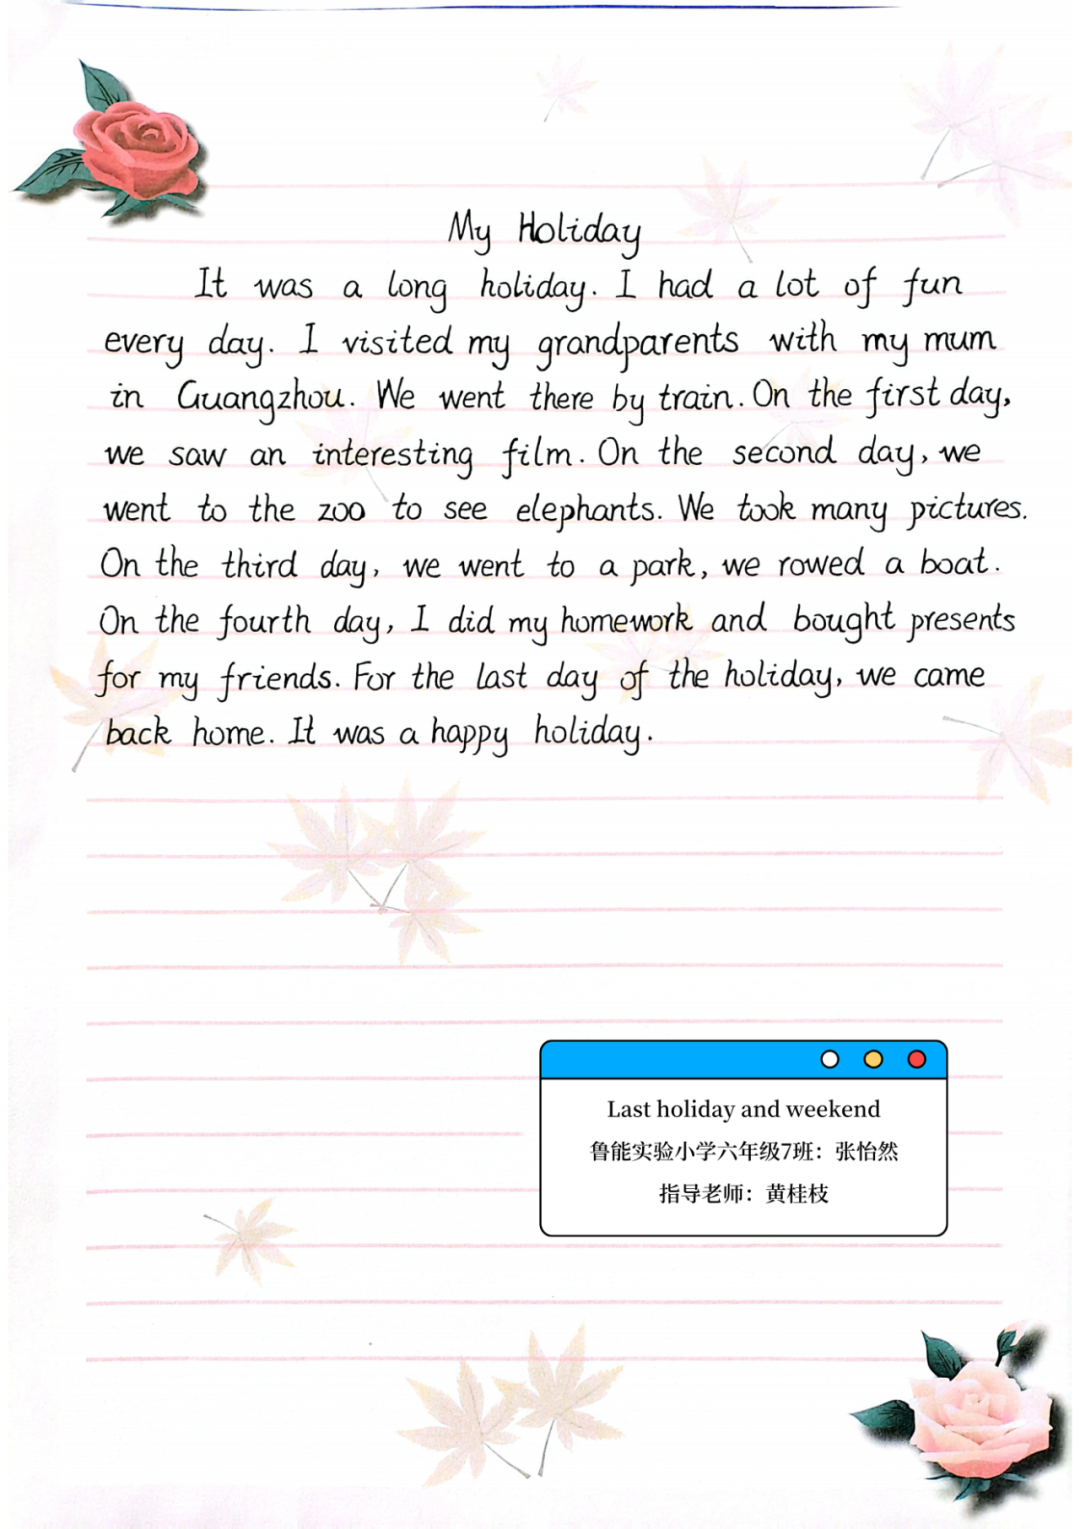 My Holiday
It was a long holiday. I had a lot of fun
every day. I visited my grandparents with my mum
in Guangzhou. We went there by train. On the first day,
we saw an interesting film. On the second day, we
went to the zoo to see elephants. We took many pictures.
On the third day, we went to a park, we rowed a boat.
On the fourth day, I did my homework and bought presents
for my friends. For the last day of the holiday, we came
back home. It was a happy holiday.
Last holiday and weekend
鲁能实验小学六年级7班：张怡然
指导老师：黄桂枝